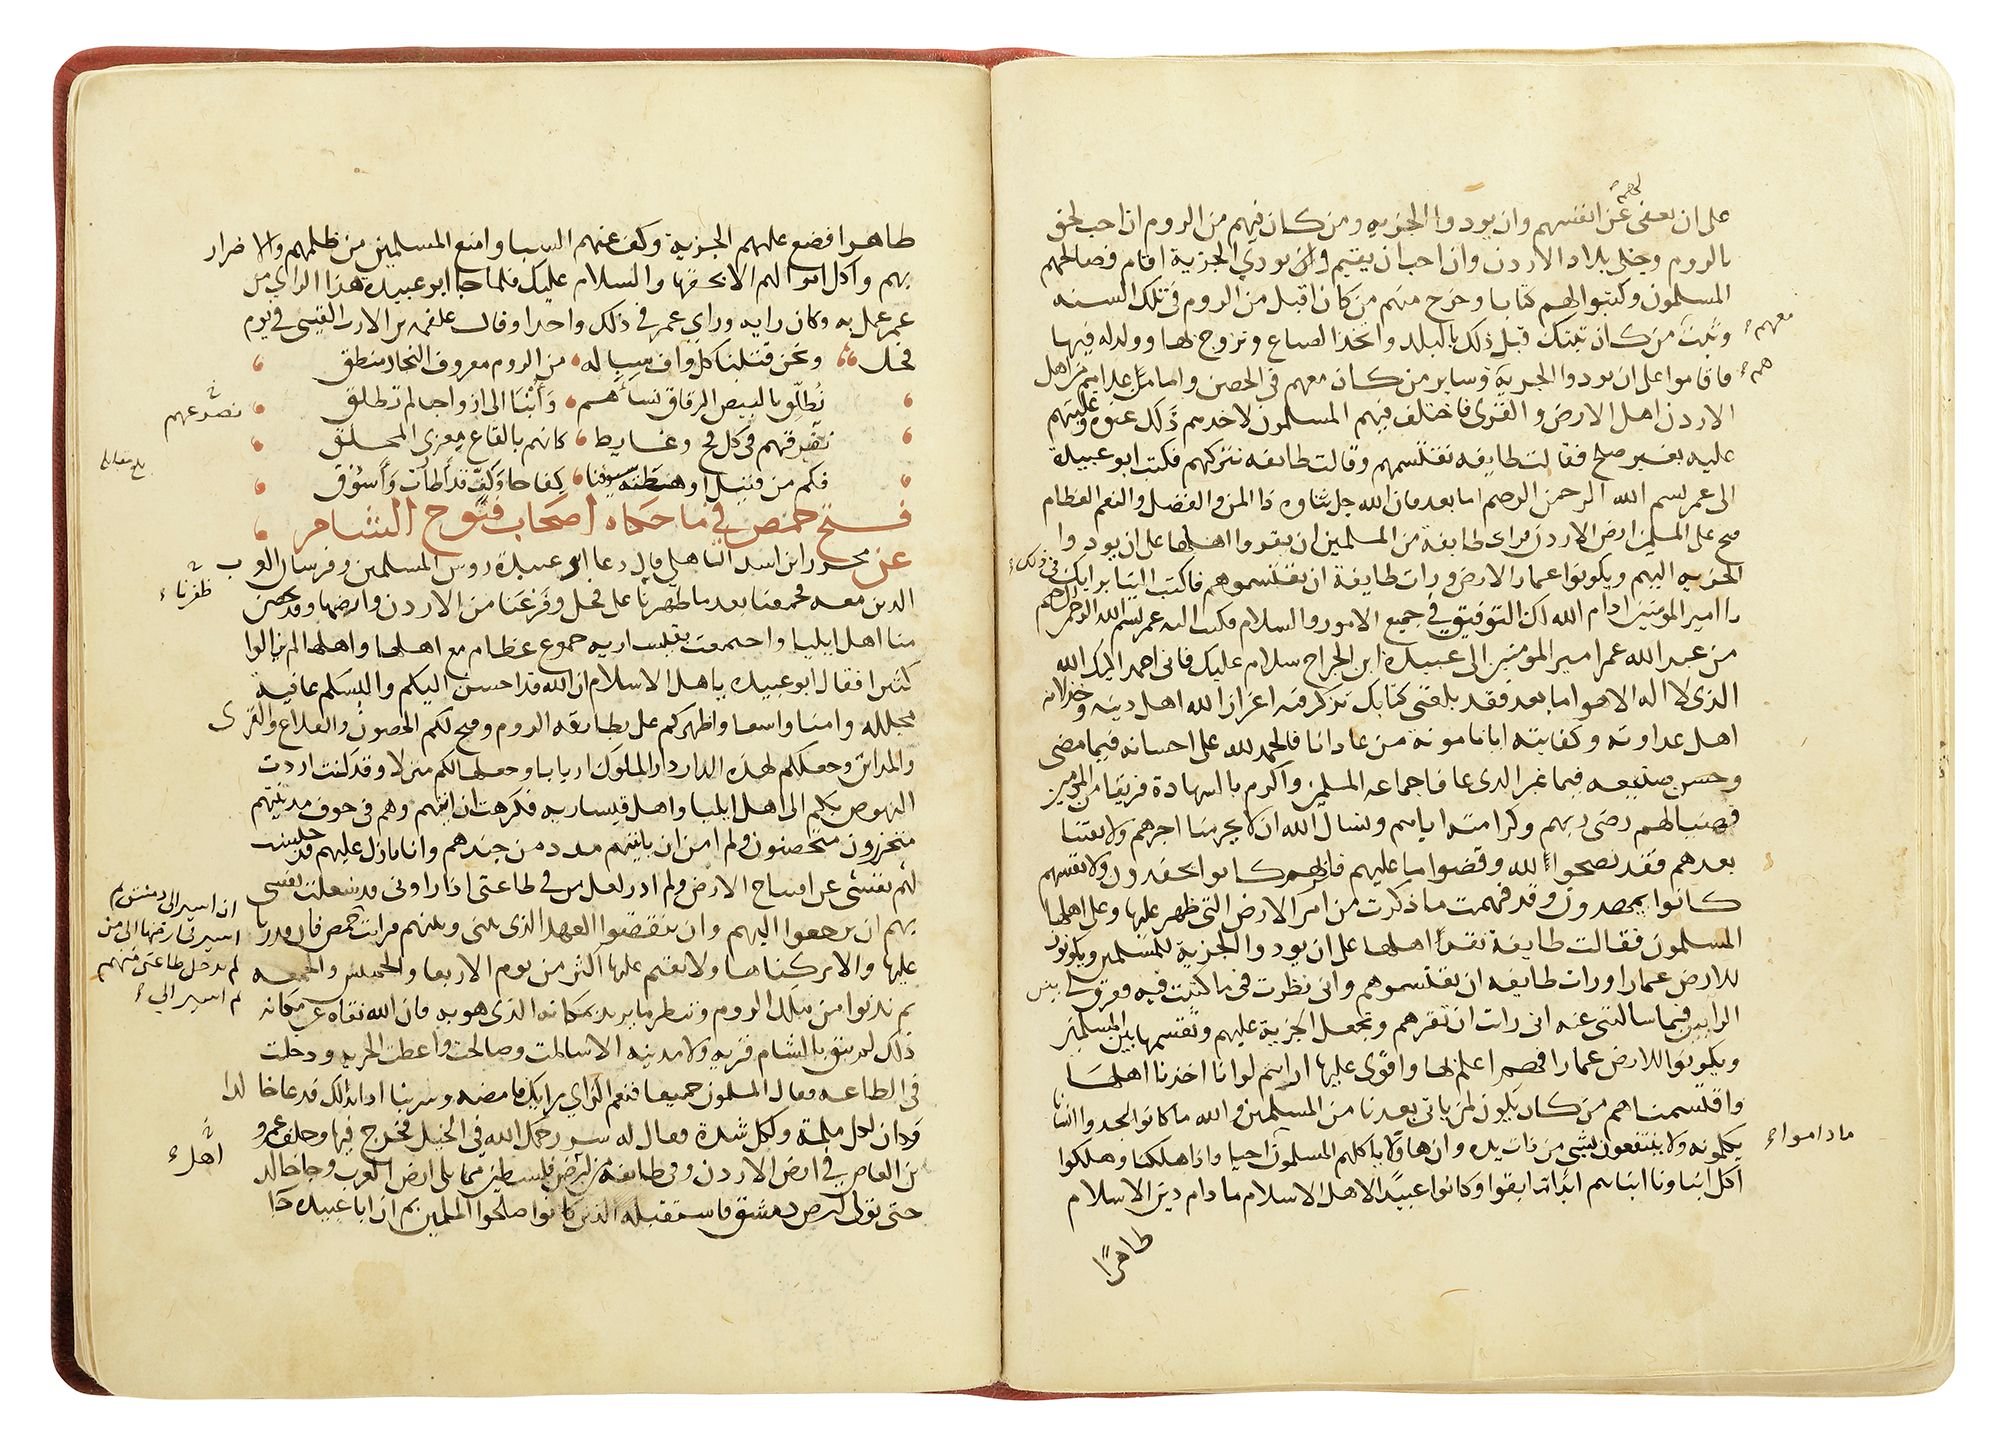 على ان يعفى لهم عن انفسهم وان يودوا الجزيه ومن كان فيهم من الروم ان احب لحق
بالروم وخلى بلاد الاردن وان احب ان يقيم وان يودي الجزية اقام فصالحهم
المسلمون وكتبوا لهم كتابا وخرج منهم من كان اقبل من الروم في تلك السنه
وثبت من كان تبنك قبل ذلك بالبلد واتخذ الضياع وتزوج بها وولد له فيها
معهم
فاقاموا على ان يودوا الجزية وساير من كان معهم في الحصن واما من عداهم من اهل
هم
الاردن اهل الارض والقرى فاختلف فيهم المسلمون لاخدهم ذلك عنوه وغلبتهم
عليه بغير صلح فقالت طايفه نقتسمهم وقالت طايفه نتركهم فكتب ابو عبيدة
الى عمر بسم الله الرحمن الرحيم اما بعد فان الله جل ثناوه ذا المن والفضل والنعم العظام
فتح على المسلمين ارض الاردن فرات طايفة من المسلمين ان يقروا اهلها على ان يودوا
الجزيه اليهم ويكونوا عمار الارض ورات طايفة ان يقتسموهم فاكتب الينا برايك في ذلك
يا امير المومنين ادام الله لك التوفيق في جميع الامور والسلام فكتب اليه عمر بسم الله الرحمن الرحيم
من عبد الله عمر امير المومنين الى عبيدة ابن الجراح سلام عليك فاني احمد اليك الله
الذي لا اله الا هو اما بعد فقد بلغني كتابك تذكر فيه اعزاز الله اهل دينه وخذلانه
اهل عداوته وكفايته ايانا مونة من عادانا فالحمد لله على احسانه فيما مضى
وحسن صنيعه فيما غبر الذي عافا جماعه المسلمين واكرم بالشهادة فريقا من المومنين
فهنيا لهم رضى ربهم وكرامته اياهم ونسال الله ان لا يحرمنا اجرهم ولا يفتنا
بعدهم فقد نصحوا لله وقضوا ما عليهم فلربهم كانوا يحفدون ولانفسهم
كانوا يمهدون وقد فهمت ما ذكرت من امر الارض التي ظهر عليها وعلى اهلها
المسلمون فقالت طايفة نقر اهلها على ان يودوا الجزية للمسلمين ويكونون
للارض عمارا ورات طايفه ان يقتسموهم واني نظرت في ما كتبت فيه ففرق لي بين
الرايين فيما سالتني عنه اني رايت ان تقرهم وتجعل الجزية عليهم وتقسمها بين المسلمين
ويكونوا للارض عمارا فهم اعلم بها واقوى عليها ارايتم لو انا اخذنا اهلها
واقتسمناهم من كان يكون لمن ياتي بعدنا من المسلمين والله ما كانوا ليجدوا انسانا
يكلمونه ولا ينتفعون بشي من ذات يده وان هاولا ياكلهم المسلمون احيا واذا هلكنا وهلكوا
ما داموا
اكل ابناونا ابناهم ابدا ما بقوا وكانوا عبيدا لاهل الاسلام ما دام دين الاسلام
ظاهرا
ظاهرا فضع عليهم الجزية وكف عنهم السبا وامنع المسلمين من ظلمهم والاضرار
بهم واكل اموالهم الا بحقها والسلام عليك فلما جا ابو عبيدة هذا الراي من
عمر عمل به وكان رايه وراي عمر في ذلك واحدا وقال علقمه بن الارث القيني في يوم
فحل ونحن قتلنا كل واف سباله من الروم معروف النجاد منطق
نطلق بالبيض الرقاق نساهم وأبنا الى ازواجنا لم تطلق
نصرعهم
نفرقهم في كل فج وغايط كانهم بالقاع معزى المحلق
فكم من قتيل اوهطته سيوفنا كفاحا وكف قد اطاحت وأسوق
بلغ مقابلة
فتح حمص في ما حكاه اصحاب فتوح الشام
عن محرز ابن اسد الباهلي قال دعا ابو عبيدة روس المسلمين وفرسان العرب
الذين معه فجمعنا بعد ما ظهرنا على فحل وفرغنا من الاردن وارضها وقد تحصن
ظفرنا
منا اهل ايليا واجتمعت بقيساريه جموع عظام مع اهلها واهلها لم يزالوا
كثيرا فقال ابو عبيده ياهل الاسلام ان الله قد احسن اليكم والبسكم عافية
مجلله وامنا واسعا واظهركم على بطارقه الروم وفتح لكم الحصون والقلاع والقرى
والمداين وجعلكم لهذه الدار دار الملوك اربابا وجعلها لكم منزلا وقد كنت اردت
النهوض بكم الى اهل ايليا واهل قيساريه فكرهت ان اتيهم وهم في جوف مدينتهم
متحرزون متحصنون ولم امن ان ياتيهم مدد من جندهم وانا نازل عليهم قد حبست
لهم نفسي عن افتتاح الارض ولم ادر لعل من في طاعتي اذا راوني قد شغلت نفسي
ان اسير الى دمشق ثم
بهم ان يرجعوا اليهم وان ينقضوا العهد الذي بيني وبينهم فرايت
اسير في ارضها الى من
عليها والا تركناها ولا نقيم عليها اكثر من يوم الاربعا والخميس والجمعه
لم يدخل طاعتي منهم
ثم اسير الى
ملك الروم وننظر ما يريد بمكانه الذي هو به فان الله نفاه عن مكانه
ذلك لم يبق بالشام قريه ولا مدينه الا سالمت وصالحت واعطت الجزيه ودخلت
في الطاعه فقال المسلمون جميعا فنعم الراي رايك فامضه وسر بنا اذا بدا لك فدعا خالدا
وكان لكل ملمة ولكل شدة فقال له سر رحمك الله في الخيل فخرج فيها وخلف عمرو
بن العاص في ارض الاردن وفي طايفة من ارض فلسطين مما يلي ارض العرب وجا خالد
اهل
حتى تولى ارض دمشق فاستقبله الذين كانوا صالحوا المسلمين ثم ان ابا عبيدة جا